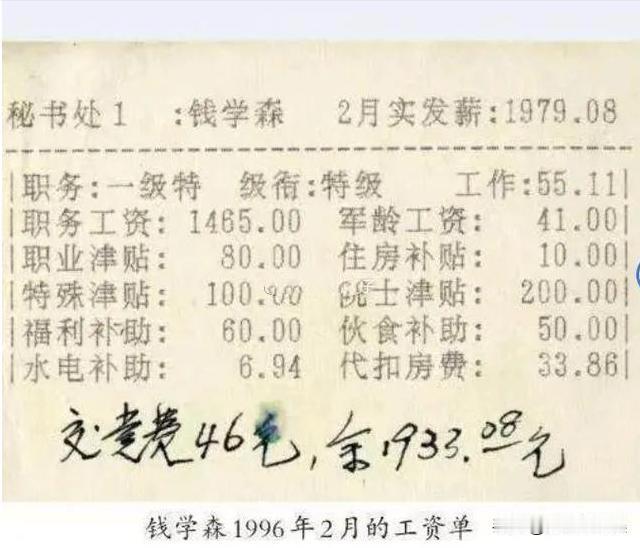 秘书处1 :钱学森 2月实发薪:1979.08
职务:一级特 级衔:特级 工作:55.11
职务工资: 1465.00 军龄工资: 41.00
职业津贴: 80.00 住房补贴: 10.00
特殊津贴: 100.00 院士津贴: 200.00
福利补助: 60.00 伙食补助: 50.00
水电补助: 6.94 代扣房费: 33.86
交党费46元,余1933.08元
钱学森1996年2月的工资单